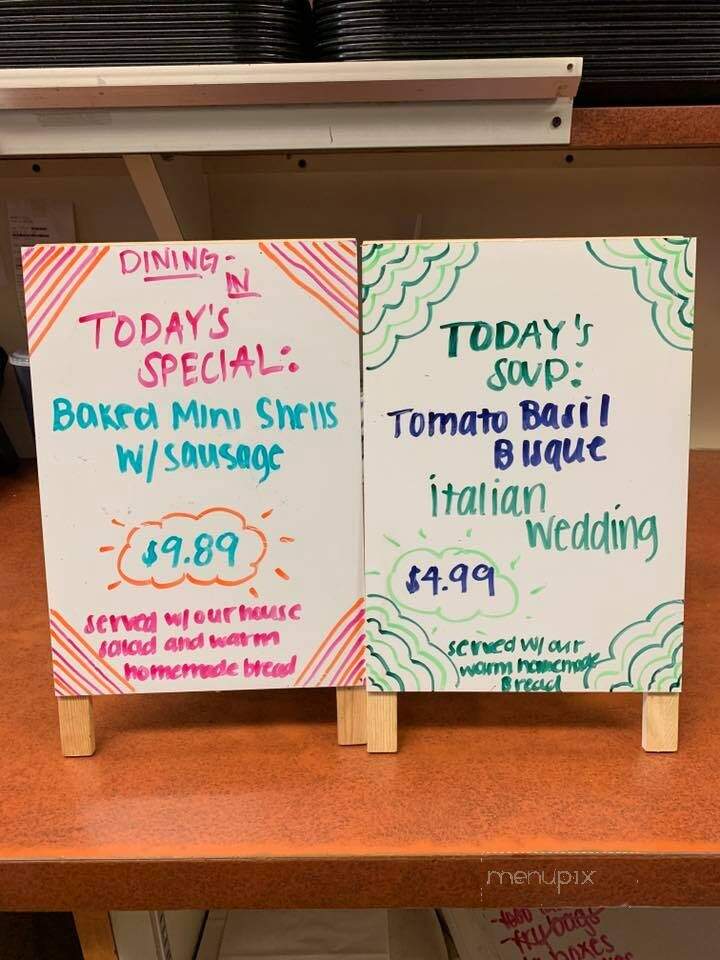 DINING-
IN
TODAY'S
SPECIAL:
Baked Mini Shells
W/sausage
$9.89
served w/our house
salad and warm
homemade bread
TODAY'S
SOUP:
Tomato Basil
Bisque
italian
wedding
$4.99
served w/our
warm homemade
Bread
menupix
boxes